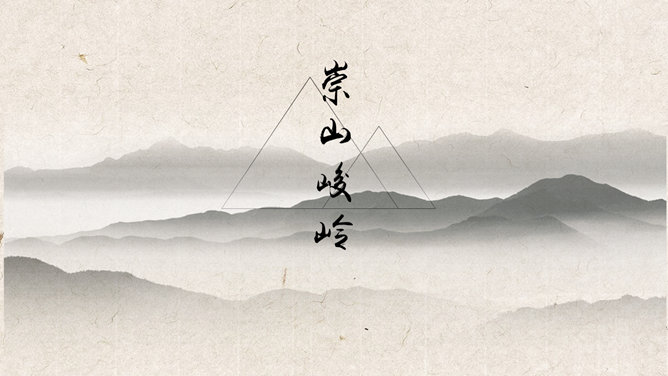 崇山峻岭